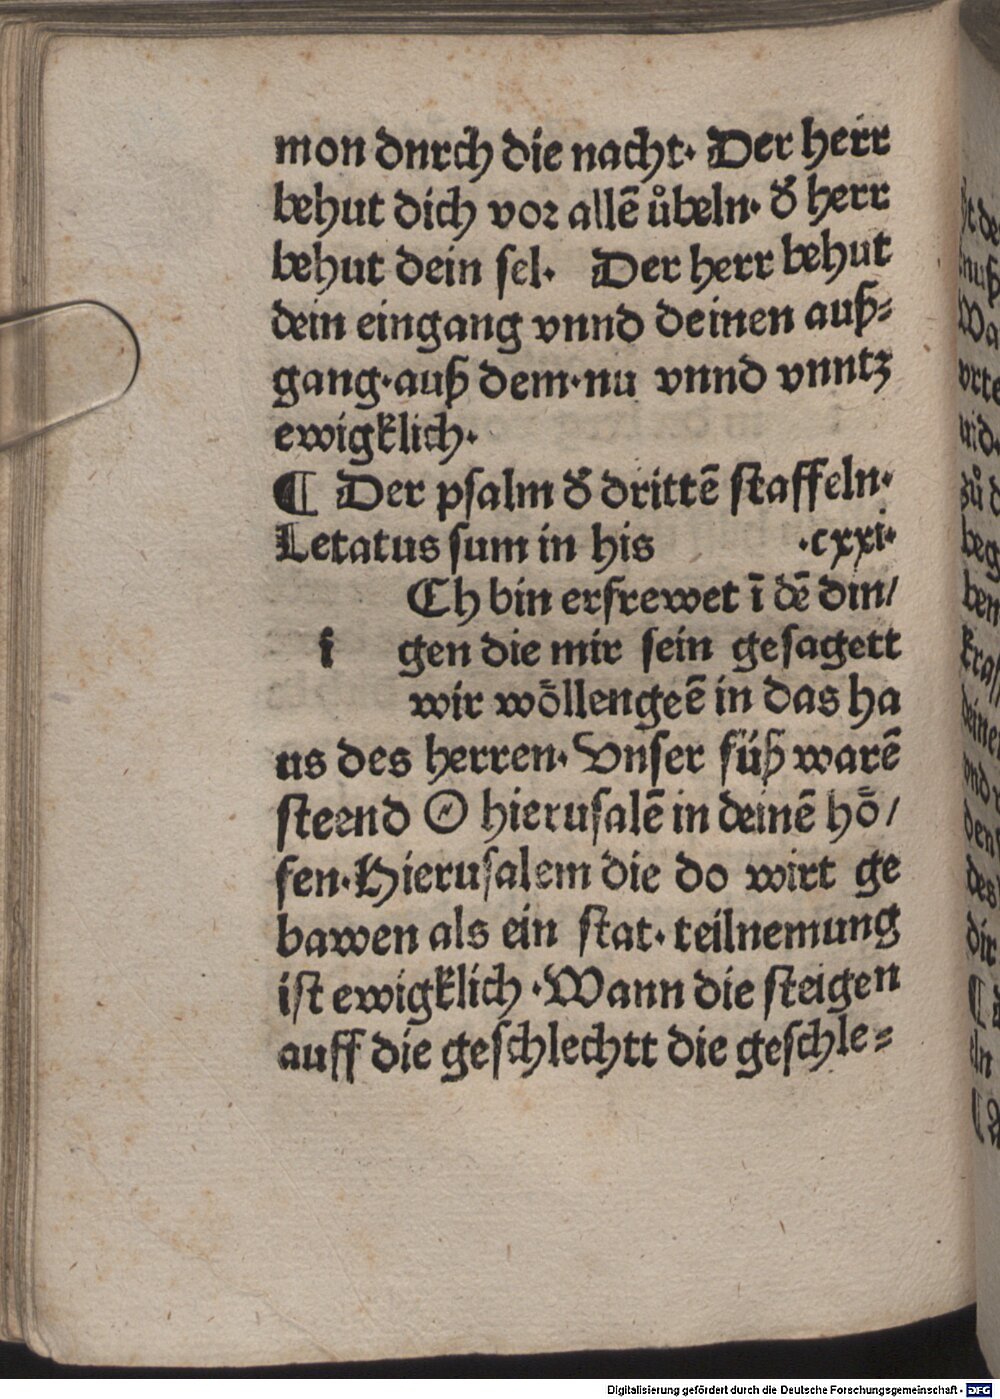 mon dnrch die nacht. Der herr
behut dich vor allē uͦbeln. d̕ herr
behut dein sel. Der herr behut
dein eingang vnnd deinen auß⸗
gang.auß dem.nu vnnd vnntz
ewigklich.
¶ Der psalm d̕ drittē staffeln.
Letatus sum in his .cxxi.
Ch bin erfrewet ī dē din/
i gen die mir sein gesagett
wir woͤllengeē in das ha
us des herren. Vnser füß warē
steend O hierusalē in deinē hoͤ/
fen.Hierusalem die do wirt ge
bawen als ein stat. teilnemung
ist ewigklich .Wann die steigen
auff die geschlechtt die geschle⸗
Digitalisierung gefördert durch die Deutsche Forschungsgemeinschaft - DFG